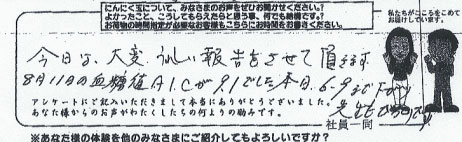 にんにく玉について、みなさまのお声をぜひお聞かせください。
よかったこと、こうしてもらえたらと思う事、何でも結構です?
お荷物の時間指定が必要なお客様もこちらにお時間をお書きください。
私たちがこころをこめて
お届けしています。
今日は、大変うれしい報告をさせて頂きます
8月11日の血糖値A1.Cが9.1でした本日、6-9まで下がり
先生も
アンケートにご記入いただきまして本当にありがとうございました。
あなた様からのお声がわたくしたちの何よりの励みです。
社員一同
※あなた様の体験を他のみなさまにご紹介してもよろしいですか?